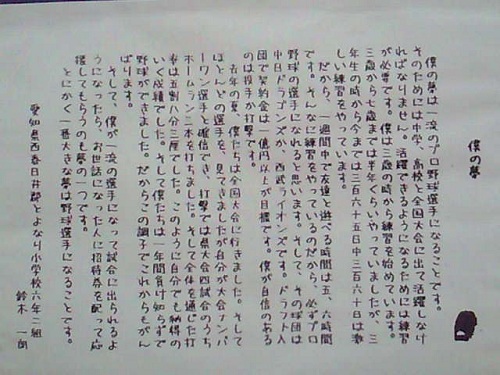 僕の夢
僕の夢は一流のプロ野球選手になることです。
そのためには中学、高校と全国大会に出て活躍しなけ
ればなりません。活躍できるようになるためには練習
が必要です。僕は三歳の時から練習を始めています。
三歳から七歳までは半年くらいやっていましたが、三
年生の時から今までは三百六十五日中三百六十日は激
しい練習をやっています。
だから、一週間中で友達と遊べる時間は五、六時間
です。そんなに練習をやっているのだから、必ずプロ
野球の選手になれると思います。そして、その球団は
中日ドラゴンズか、西武ライオンズです。ドラフト入
団で契約金は一億円以上が目標です。僕が自信のある
のは投手か打撃です。
去年の夏、僕たちは全国大会に行きました。そして
ほとんどの選手を、見てきましたが自分が大会ナンバ
ーワン選手と確信でき、打撃では県大会四試合のうち
ホームラン二本を打ちました。そして全体を通した打
率は五割八分三厘でした。このように自分でも納得の
いく成績でした。そして僕たちは一年間負け知らずで
野球ができました。だからこの調子でこれからもがん
ばります。
そして、僕が一流の選手になって試合に出られるよ
うになったら、お世話になった人に招待券を配って応
援してもらうのも夢の一つです。
とにかく一番大きな夢は野球選手になることです。
愛知県西春日井郡とよなり小学校六年二組
鈴木 一朗